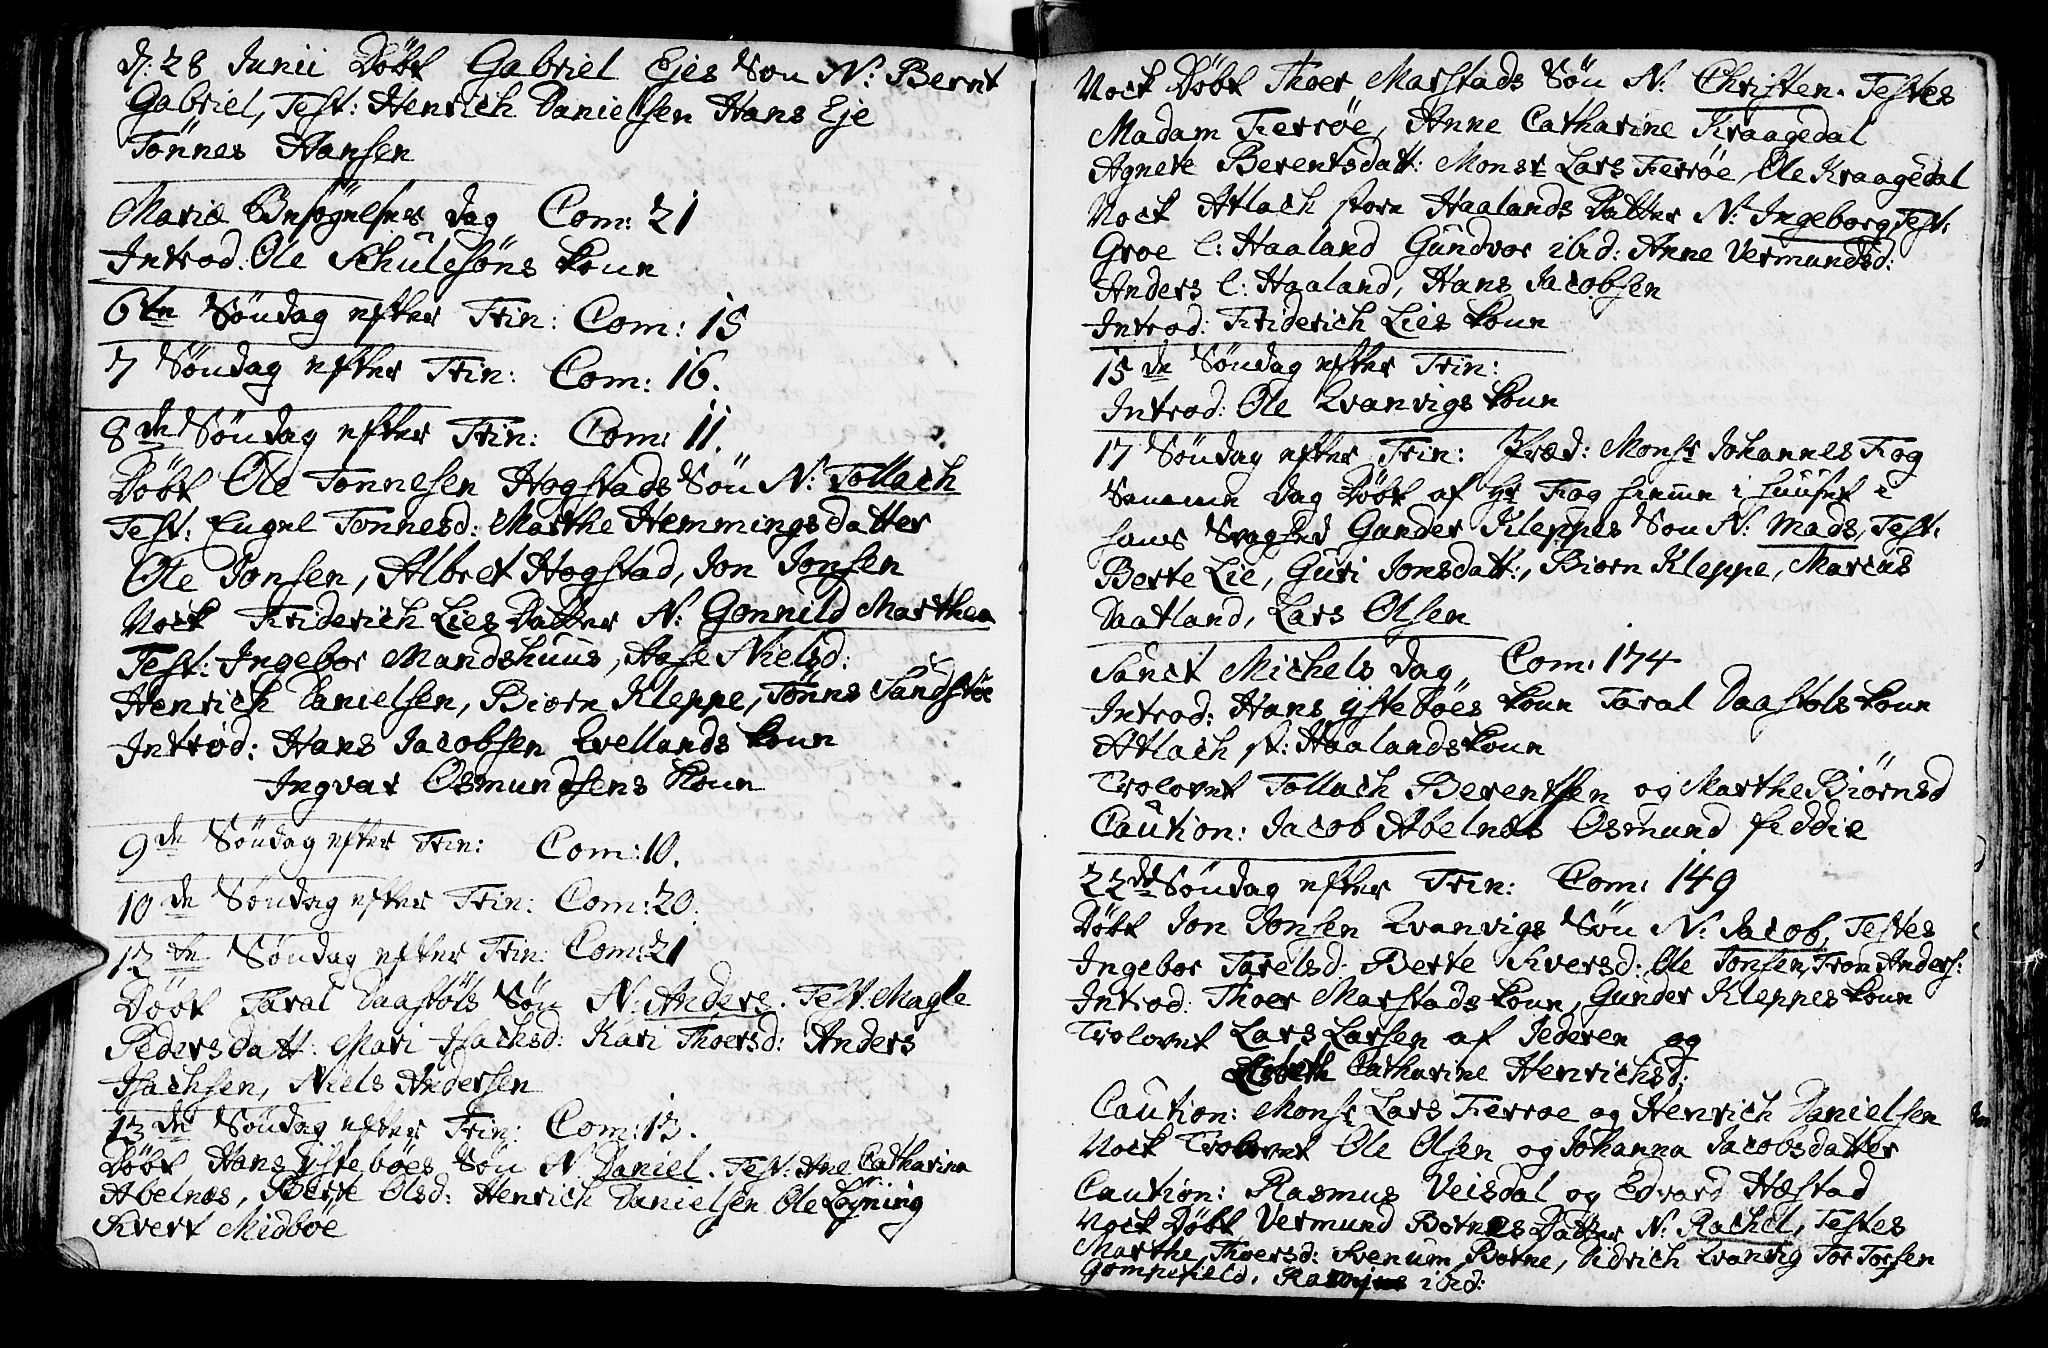 d: 28 Junii Döbt Gabriel Ejes Son N: Bernt
Gabriel, Test: Henrich Danielsen Hans Eje
Tönnes Hansen
Mariæ Besögelses dag Com: 21
Introd: Ole Schulesöns Koun
6te Söndag efter Trin: Com: 15
7 Söndag efter Trin: Com: 16.
8de Söndag efter Trin: Com: 11.
Döbt Ole Tonnesen Hogstads Sön N: Tollach
Test: Engel Tonnesd: Marthe Hemmingsdatter
Ole Jonsen, Albret Hogstad, Jon Jonsen
Nock Friderich Lies Datter N: Gonnild Marthea
Test: Ingebor Mandshuus, Aase Nielsd:
Henrich Danielsen, Biorn Kleppe, Tönns Sandstöe
Introd: Hans Jacobsen Qvellands Koun
Ingvar Osmundsens Koun
9de Söndag efter Trin: Com: 10.
10de Söndag efter Trin: Com: 20.
12te Söndag efter Trin: Com: 21
Döbt Taral Daastöls Sön N: Anders. Test. Magle
Pedersdatt: Mari Isachsd: Kari Thoersd: Anders
Isachsen, Niels Andersen
13de Söndag efter Trin: Com: 13.
Döbt Hans Ysteböes Sön N. Daniel. Test: Ane Catharina
Abelnæs, Berte Olsd: Henrich Danielsen Ole Löyning
Sivert Midböe
Nock Döbt Thoer Marstads Sön N: Christen. Testes
Madam Ferröe, Anne Catharine Kraagedal
Agnete Berentsdatt: Monsr Lars Ferröe, Ole Kraagedal
Nock Atlach store Haalands Datter N: Ingeborg, Test:
Groe l: Haaland Gundvor ibid: Anne Vermundsd:
Anders l: Haaland, Hans Jacobsen
Introd: Friderich Lies Koun
15de Söndag efter Trin:
Introd: Ole Qvanvigs Koun
17 Söndag efter Trin: Præd: Monsr Johannes Fog
Samme dag Döbt af Hr Fog hieme i huuset i
hans Svaghed Gunder Kleppes Son N: Mads, Test:
Berte Lie, Guri Jonsdatt:, Biorn Kleppe, Marcus
Daatland, Lars Olsen
Sanct Michels dag Com: 174
Introd: Hans Ysteböes Koun Taral Daastöls Koun
Atlach st: Haalands Koun
Trolovet Tollach Berentsen og Marthe Biörnsd
Caution: Jacob Abelnæs Osmund Feddie
22de Söndag efter Trin: Com: 149
Döbt Jon Jonsen Qvanvigs Sön N: Jacob, Testes
Ingebor Tarelsd: Berte Siversd: Ole Tonsen, Tron Anders:
Introd: Thoer Marstads Koun, Gunder Kleppes Koun
Trolovet Lars Larsen af Jederen og
Catharine Henrichsd:
Caution: Monsr Lars Ferroe og Henrich Danielsen
Nock Trolovet Ole Olsen og Johanna Jacobsdatter
Caution: Rasmus Veisdal og Edvard Hæstad
Nock Döbt Vermund Botnes Datter N: Rachel, Testes
Marthe Thoersd: Svenum Botne, Didrich Qvanvig Tor Torsen
Rasmus ibid: